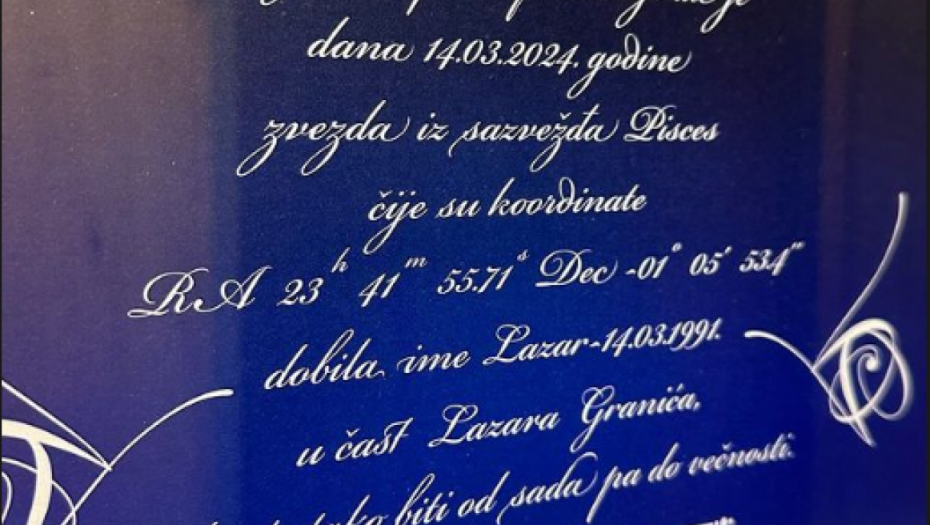 dana 14.03.2024. godine
zvezda iz sazvežđa Pisces
čije su koordinate
RA 23h 41m 55.71s Dec -01° 05' 53.4"
dobila ime Lazar-14.03.1991.
u čast Lazara Granića,
biti od sada pa do večnosti.